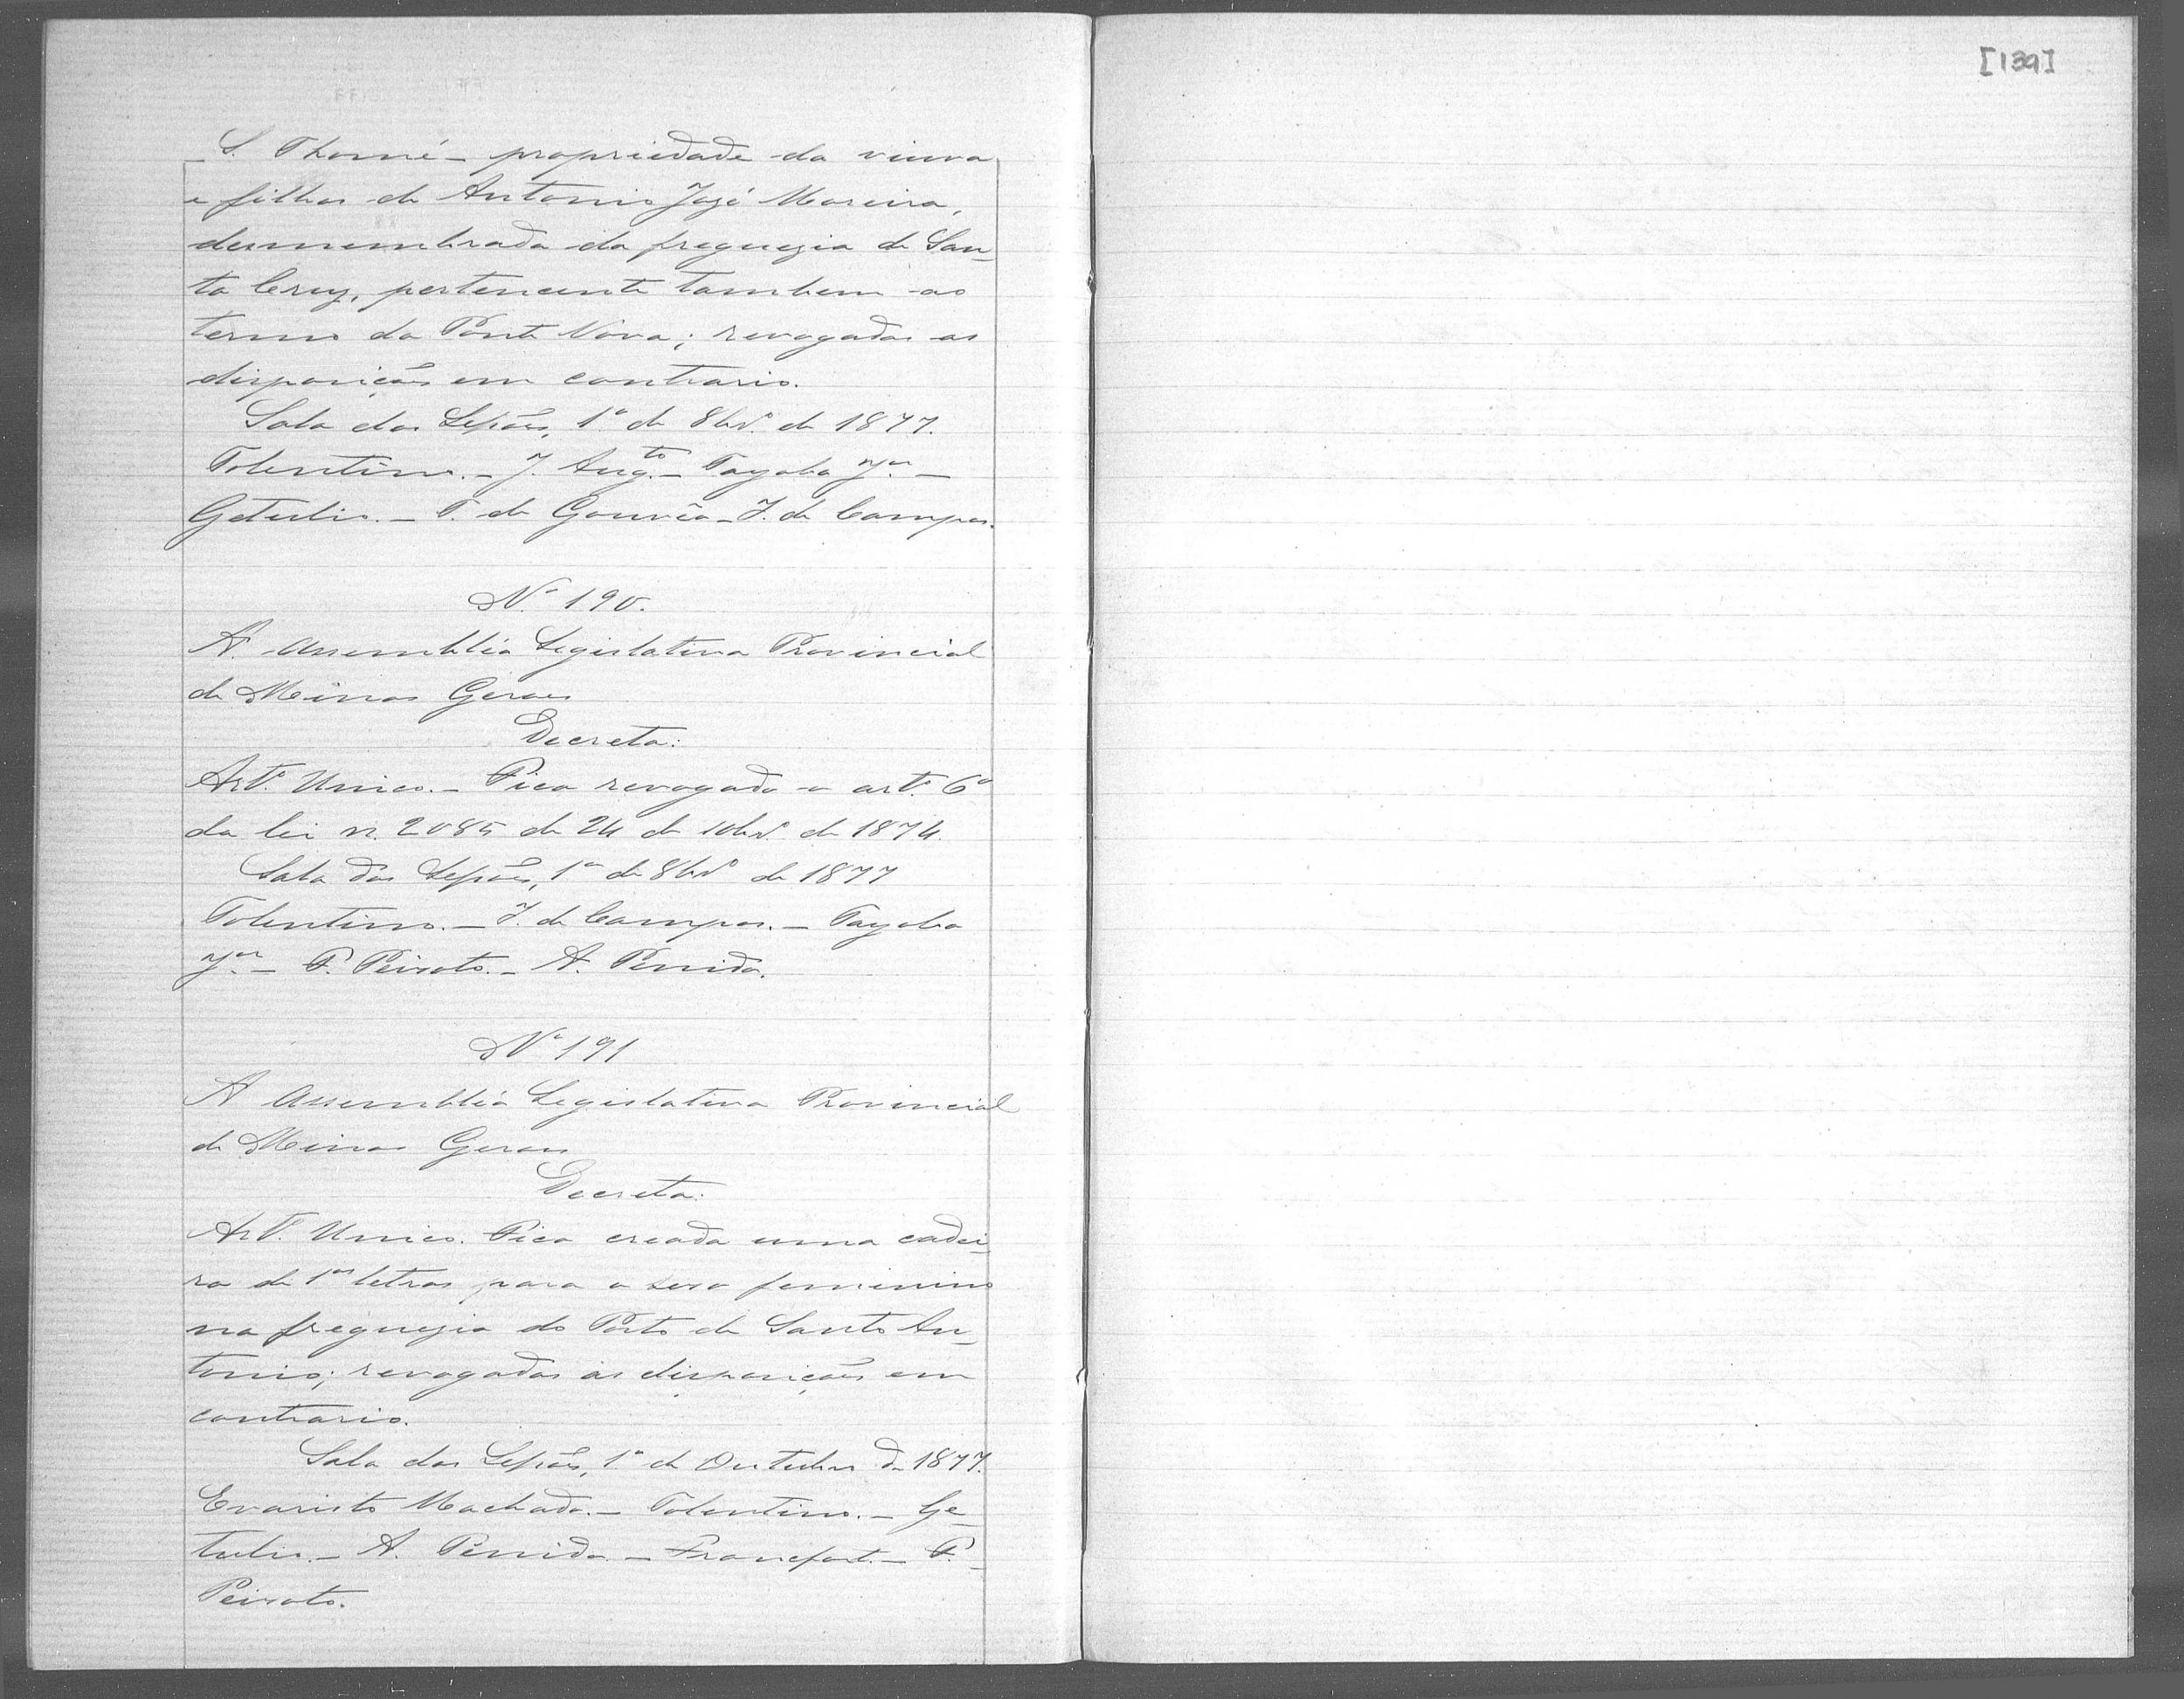 [139]
S. Thomé - propriedade da viuva
e filhos de Antonio José Moreira,
desmembrada da freguezia de San-
ta Cruz, pertencente tambem ao
termo da Ponte Nova; revogadas as
disposições em contrario.
Sala das Sessões, 1º de 8brº de 1877.
Tolentino. - J. Augto. - Tayoba Jor. -
Getulio. - T. de Gouvêa - J. de Campos.
Nº 190.
A Assembléa Legislativa Provincial
de Minas Geraes
Decreta:
Artº. Unico. - Fica revogado o artº. 6º
da lei n. 2085 de 24 de 10brº de 1874.
Sala das Sessões, 1º de 8brº de 1877
Tolentino. - J. de Campos. - Tayoba
Jor. - F. Peixoto. - A. Penido.
Nº 191
A Assembléa Legislativa Provincial
de Minas Geraes
Decreta:
Artº. Unico. Fica creada uma cadei-
ra de 1as letras para o sexo feminino
na freguezia do Porto de Santo An-
tonio; revogadas as disposições em
contrario.
Sala das Sessões, 1º de Outubro de 1877.
Evaristo Machado. - Tolentino. - Ge-
tulio. - A. Penido. - Francfort. - F.
Peixoto.